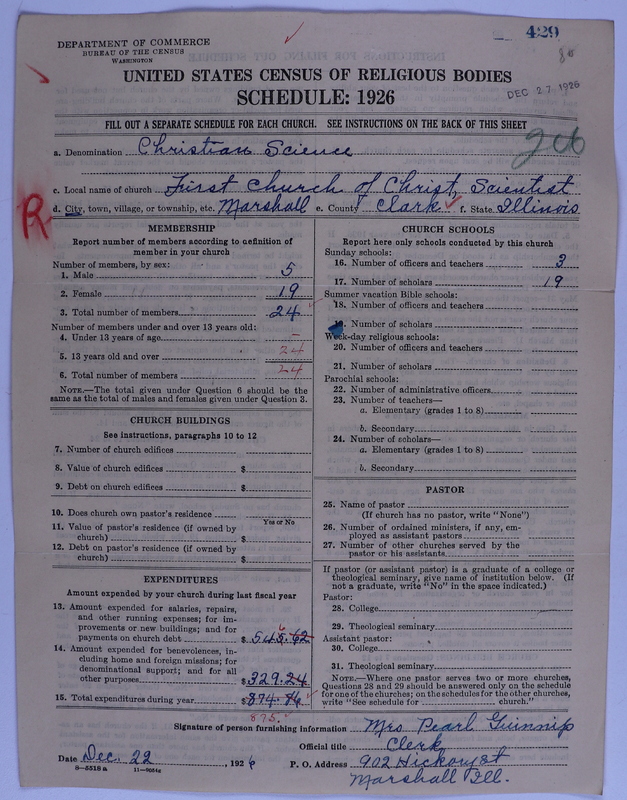 429
80
DEPARTMENT OF COMMERCE
BUREAU OF THE CENSUS
WASHINGTON
UNITED STATES CENSUS OF RELIGIOUS BODIES
SCHEDULE: 1926
DEC 27 1926
FILL OUT A SEPARATE SCHEDULE FOR EACH CHURCH. SEE INSTRUCTIONS ON THE BACK OF THIS SHEET
a. Denomination Christian Science
c. Local name of church First Church of Christ, Scientist
R
d. City, town, village, or township, etc. Marshall e. County Clark f. State Illinois
MEMBERSHIP
Report number of members according to definition of
member in your church
Number of members, by sex:
1. Male 5
2. Female 19
3. Total number of members 24
Number of members under and over 13 years old:
4. Under 13 years of age –
5. 13 years old and over 24
6. Total number of members 24
NOTE.—The total given under Question 6 should be
same as the total of males and females given under Question 3.
CHURCH BUILDINGS
See instructions, paragraphs 10 to 12
7. Number of church edifices
8. Value of church edifices $
9. Debt on church edifices $
10. Does church own pastor's residence
Yes or No
11. Value of pastor's residence (if owned by
church) $
12. Debt on pastor's residence (if owned by
church) $
EXPENDITURES
Amount expended by your church during last fiscal year
13. Amount expended for salaries, repairs,
and other running expenses; for im-
provements or new buildings; and for
payments on church debt $ 545.62
6
14. Amount expended for benevolences, in-
cluding home and foreign missions; for
denominational support; and for all
other purposes $ 329.24
15. Total expenditures during year $ 874.86
875.
CHURCH SCHOOLS
Report here only schools conducted by this church
Sunday schools:
16. Number of officers and teachers 3
17. Number of scholars 19
Summer vacation Bible schools:
18. Number of officers and teachers
19. Number of scholars
Week-day religious schools:
20. Number of officers and teachers
21. Number of scholars
Parochial schools:
22. Number of administrative officers
23. Number of teachers—
a. Elementary (grades 1 to 8)
b. Secondary
24. Number of scholars—
a. Elementary (grades 1 to 8)
b. Secondary
PASTOR
25. Name of pastor
(If church has no pastor, write "None")
26. Number of ordained ministers, if any, em-
ployed as assistant pastors
27. Number of other churches served by the
pastor or his assistants
If pastor (or assistant pastor) is a graduate of a college or
theological seminary, give name of institution below. (If
not a graduate, write "No" in the space indicated.)
Pastor:
28. College
29. Theological seminary
Assistant pastor:
30. College
31. Theological seminary
NOTE.—Where one pastor serves two or more churches,
Questions 28 and 29 should be answered only on the schedule
for one of the churches; on the schedules for the other churches,
write "See schedule for church."
Signature of person furnishing information Mrs. Pearl Gunnip
Official title Clerk
Date Dec. 22, 1926 P. O. Address 902 Hickory st
8—5518 a 11—9664
Marshall Ill.